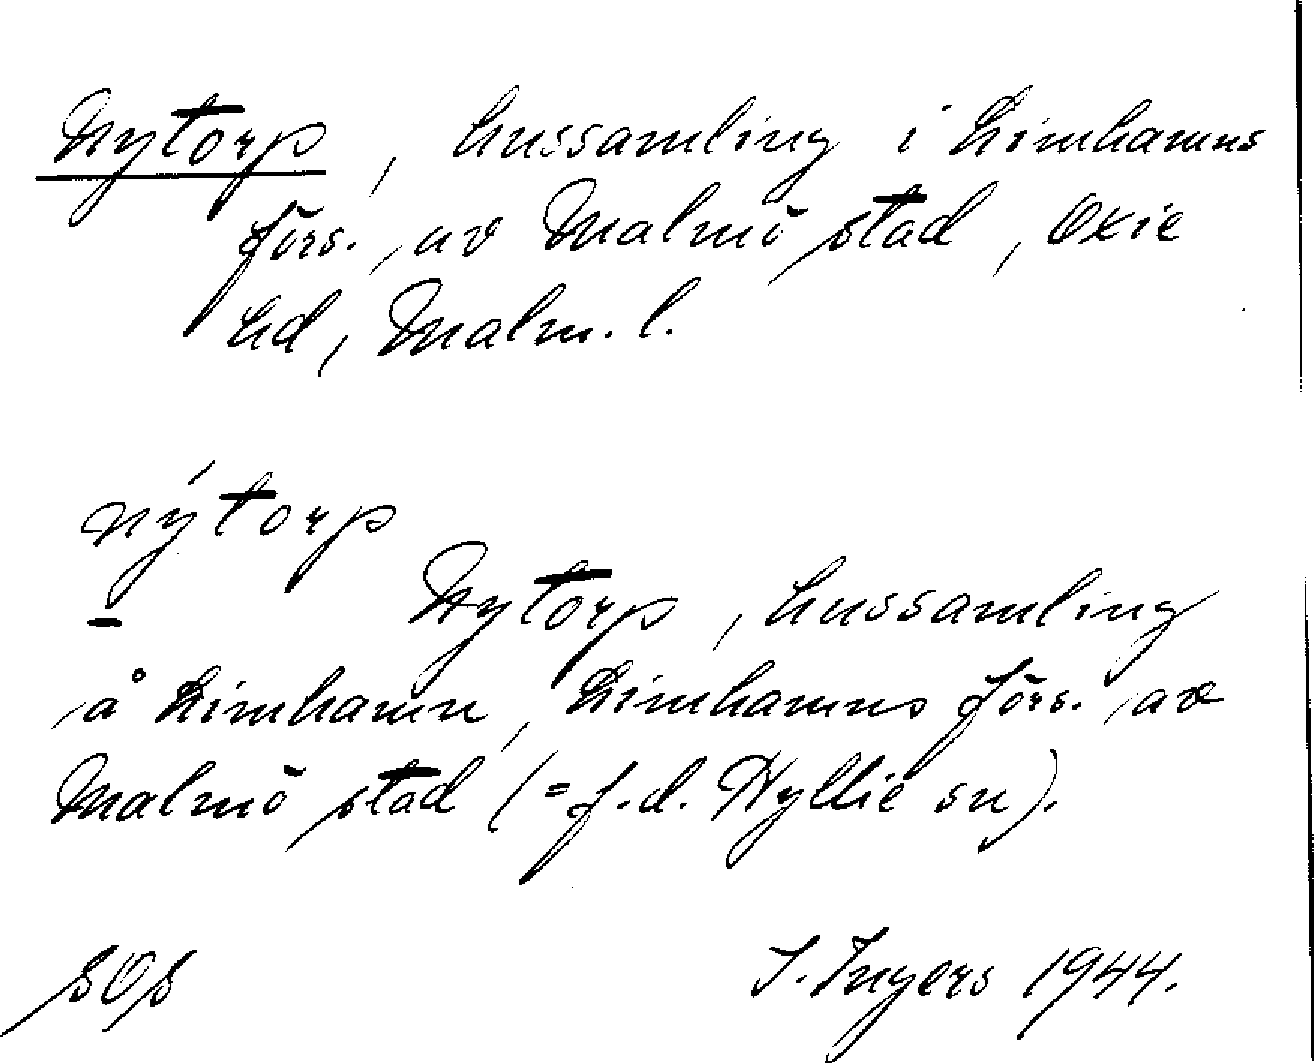 Nytorp, hussamling i Limhamns
förs. av Malmö stad, Oxie
hd, Malm. l.
nýtorp
Nytorp, hussamling
å Limhamn, Limhamns förs. av
Malmö stad (= f.d. Hyllie sn).
SOS I. Ingers 1944.